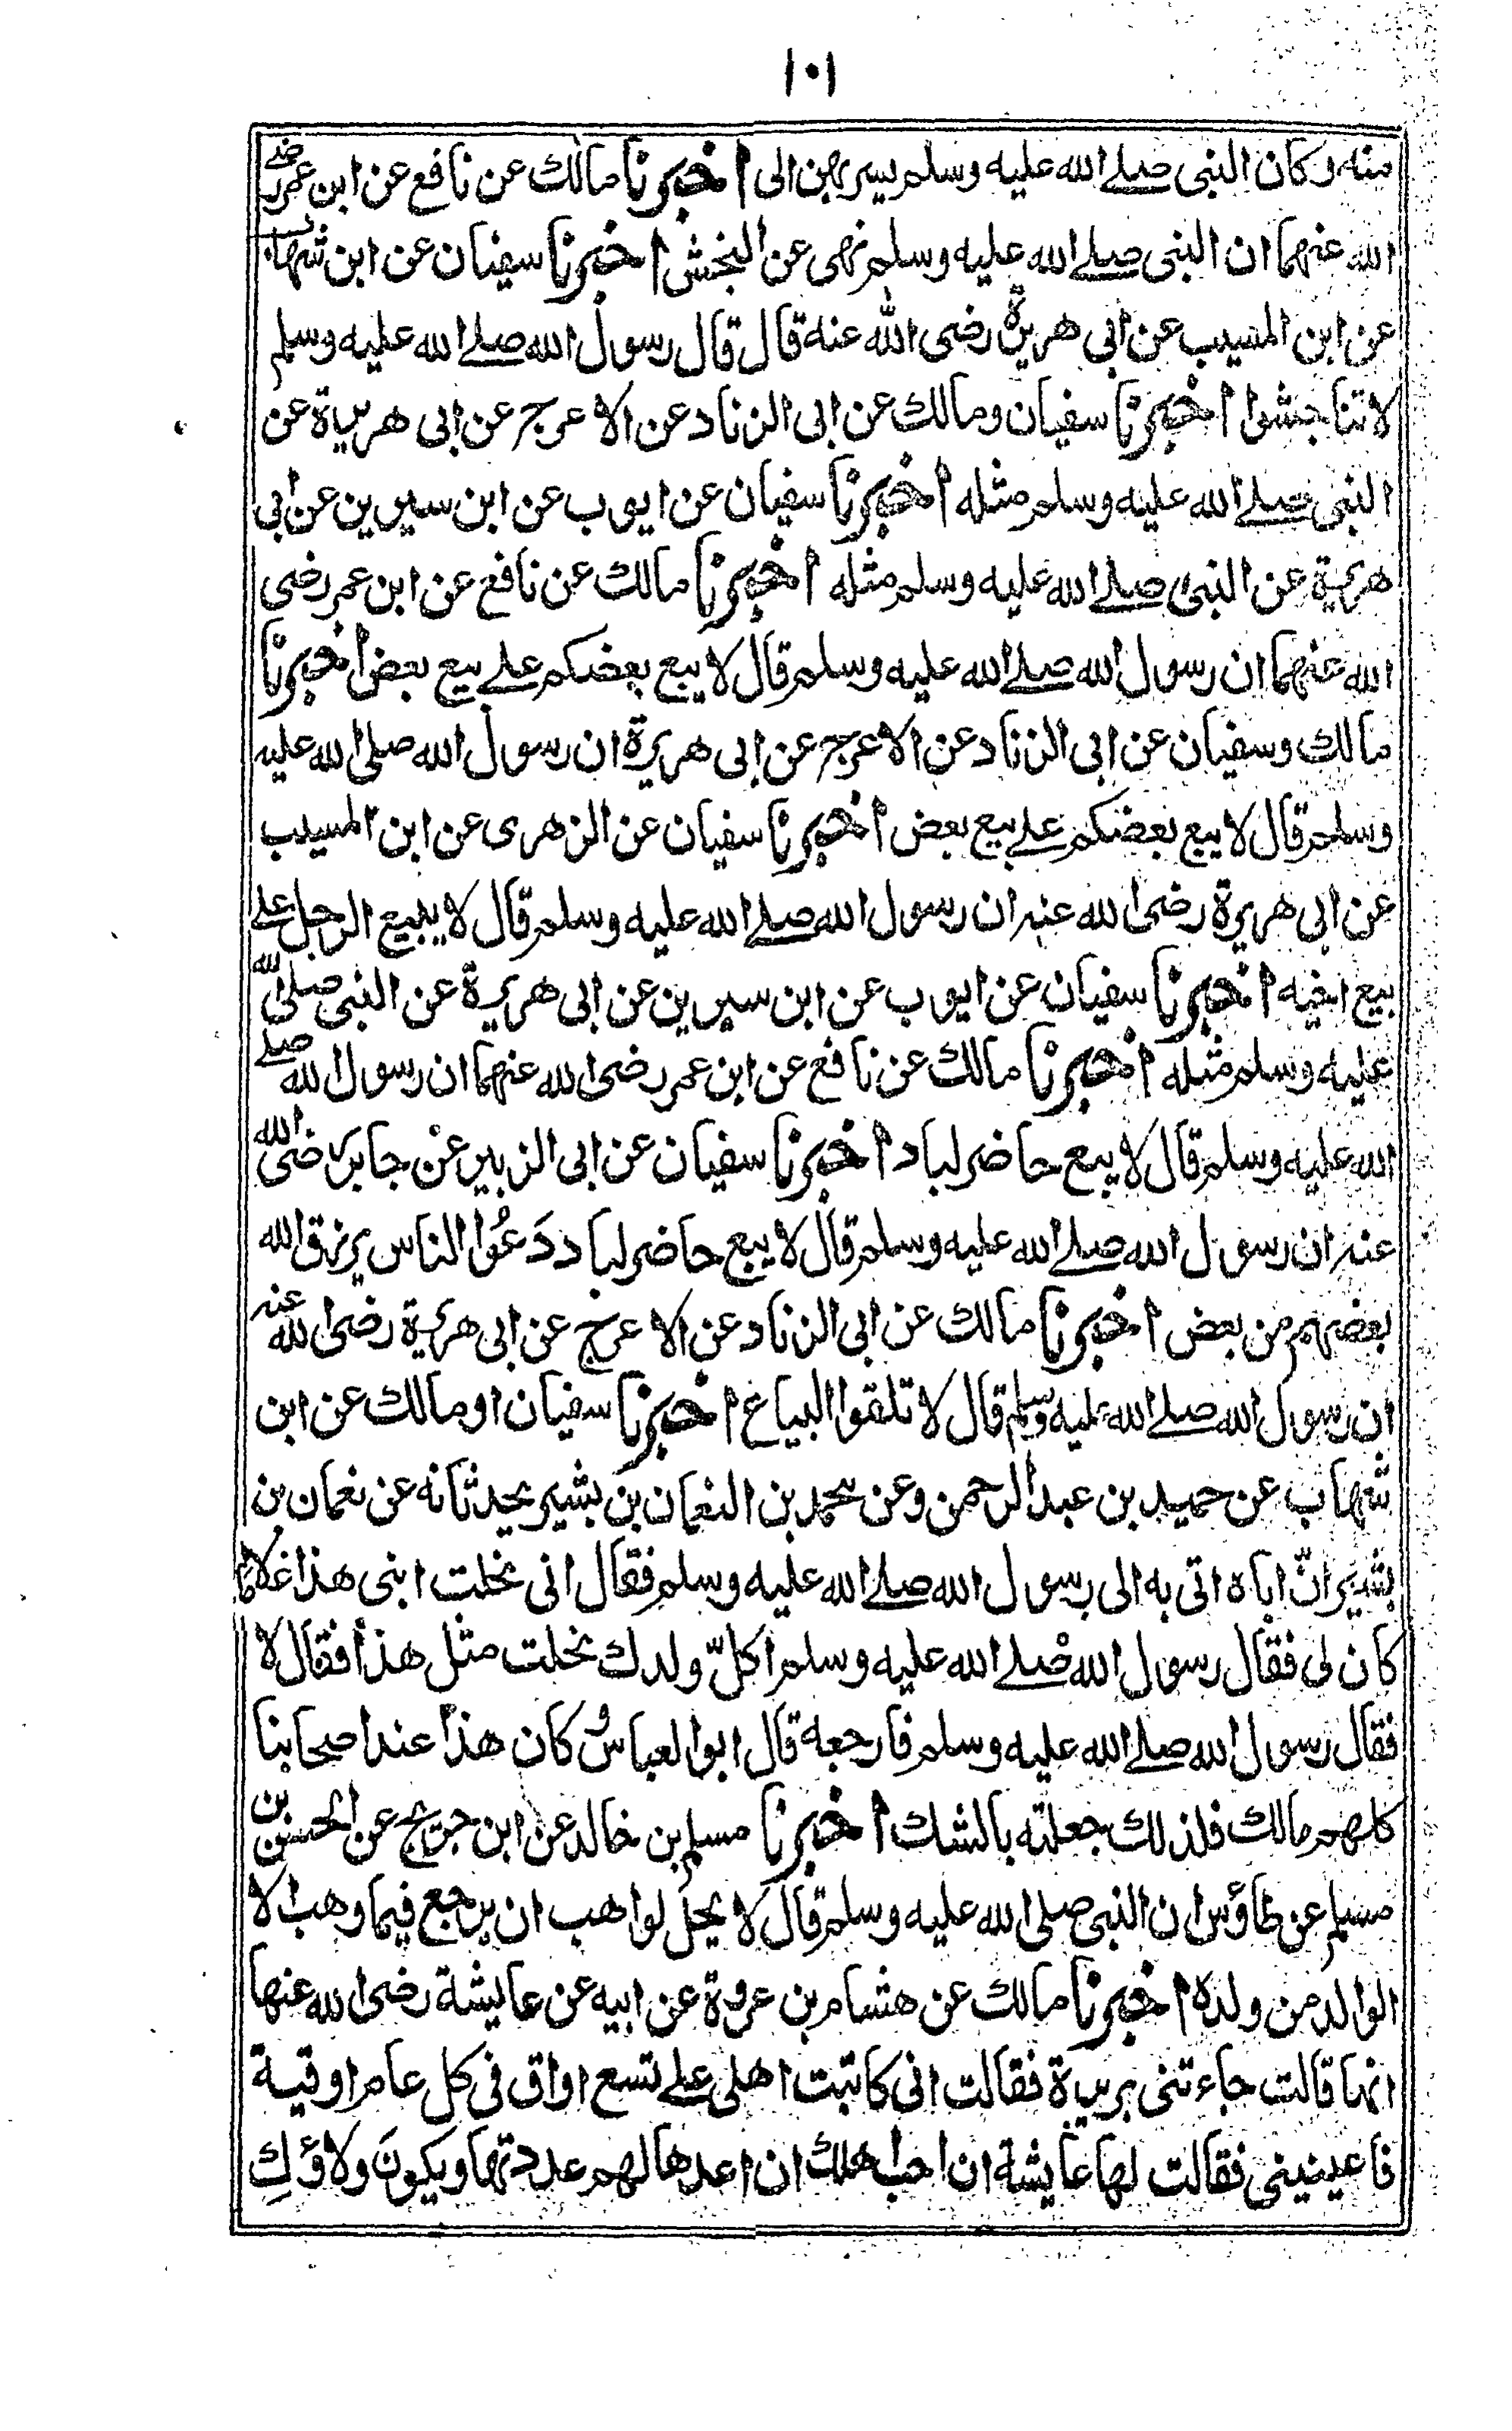 ١٠١
منه وكان النبى صلے الله عليه وسلم يسر بهن الى اخبرنا مالك عن نافع عن ابن عمر رضے
الله عنهما ان النبى صلے الله عليه وسلم نهى عن النجش اخبرنا سفيان عن ابن شهاب
عن ابن المسيب عن ابى هريرة رضى الله عنه قال قال رسول الله صلے الله عليه وسلم
لا تناجشوا اخبرنا سفيان ومالك عن ابى الزناد عن الاعرج عن ابى هريرة عن
النبى صلے الله عليه وسلم مثله اخبرنا سفيان عن ايوب عن ابن سيرين عن ابى
هريرة عن النبى صلے الله عليه وسلم مثله اخبرنا مالك عن نافع عن ابن عمر رضى
الله عنهما ان رسول الله صلے الله عليه وسلم قال لا يبع بعضكم علے بيع بعض اخبرنا
مالك وسفيان عن ابى الزناد عن الاعرج عن ابى هريرة ان رسول الله صلى الله عليه
وسلم قال لا يبع بعضكم علے بيع بعض اخبرنا سفيان عن الزهرى عن ابن المسيب
عن ابى هريرة رضى الله عنه ان رسول الله صلے الله عليه وسلم قال لا يبيع الرجل علے
بيع اخيه اخبرنا سفيان عن ايوب عن ابن سيرين عن ابى هريرة عن النبى صلى الله
عليه وسلم مثله اخبرنا مالك عن نافع عن ابن عمر رضى الله عنهما ان رسول الله صلے
الله عليه وسلم قال لا يبع حاضر لباد اخبرنا سفيان عن ابى الزبير عن جابر رضى الله
عنه ان رسول الله صلے الله عليه وسلم قال لا يبع حاضر لباد دَعُوا الناس يرزق الله
بعضهم من بعض اخبرنا مالك عن ابى الزناد عن الاعرج عن ابى هريرة رضى الله عنه
ان رسول الله صلے الله عليه وسلم قال لا تلقوا البياع اخبرنا سفيان او مالك عن ابن
شهاب عن حميد بن عبد الرحمن وعن محمد بن النعمان بن بشير يحدثانه عن نعمان بن
بشير انّ اباه اتى به الى رسول الله صلے الله عليه وسلم فقال انى نحلت ابنى هذا غلاما
كان لى فقال رسول الله صلے الله عليه وسلم اكلّ ولدك نحلت مثل هذا فقال لا
فقال رسول الله صلے الله عليه وسلم فارجعه قال ابو العباس وكان هذا عند اصحابنا
كلهم مالك فلذلك جعلته بالشك اخبرنا مسلم بن خالد عن ابن جريج عن الحسن بن
مسلم عن طاؤس ان النبى صلى الله عليه وسلم قال لا يحل لواهب ان يرجع فيما وهب الا
الوالد من ولده اخبرنا مالك عن هشام بن عروة عن ابيه عن عايشة رضى الله عنها
انها قالت جاءتنى بريرة فقالت انى كاتبت اهلى علے تسع اواق فى كل عام اوقية
فاعينينى فقالت لها عايشة ان احب اهلك ان اعدها لهم عددتها ويكونَ ولاؤكِ